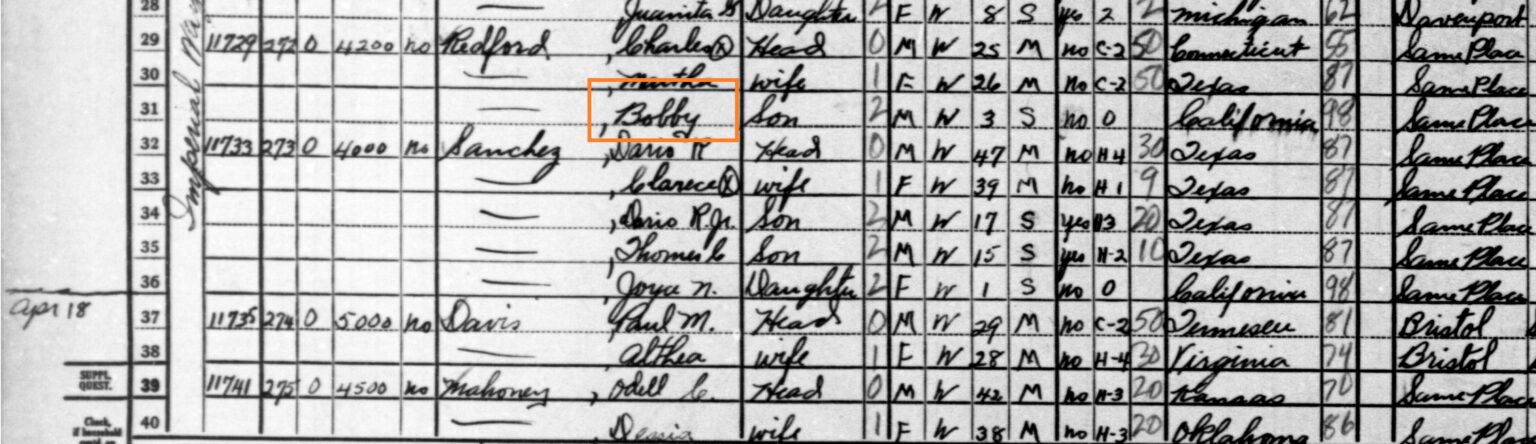 28 Juanita G Daughter 2 F W 8 S yes 2 2 Michigan 62 Davenport
29 11729 272 0 4200 no Redford , Charles (X) Head 0 M W 25 M no C-2 50 Connecticut 55 Same Place
30 — , Martha wife 1 F W 26 M no C-2 50 Texas 87 Same Place
31 — , Bobby Son 2 M W 3 S no 0 California 98 Same Place
32 11733 273 0 4000 no Sanchez , Dario R Head 0 M W 47 M no H4 30 Texas 87 Same Place
33 — , Clarece (X) wife 1 F W 39 M no H1 9 Texas 87 Same Place
34 — , Dario R. Jr. Son 2 M W 17 S yes H3 20 Texas 87 Same Place
35 — , Thomas C Son 2 M W 15 S yes H-2 10 Texas 87 Same Place
36 — , Joyce N. Daughter 2 F W 1 S no 0 California 98 Same Place
Apr 18
37 11735 274 0 5000 no Davis Paul M. Head 0 M W 29 M no C-2 50 Tennessee 81 Bristol
38 — Althea wife 1 F W 28 M no H-4 30 Virginia 74 Bristol
SUPPL. QUEST.
39 11741 275 0 4500 no Mahoney , Odell C. Head 0 M W 42 M no H-3 20 Kansas 70 Same Place
40 — Dessia wife 1 F W 38 M no H-3 20 Oklahoma 86 Same Place
Check, if household
Imperial